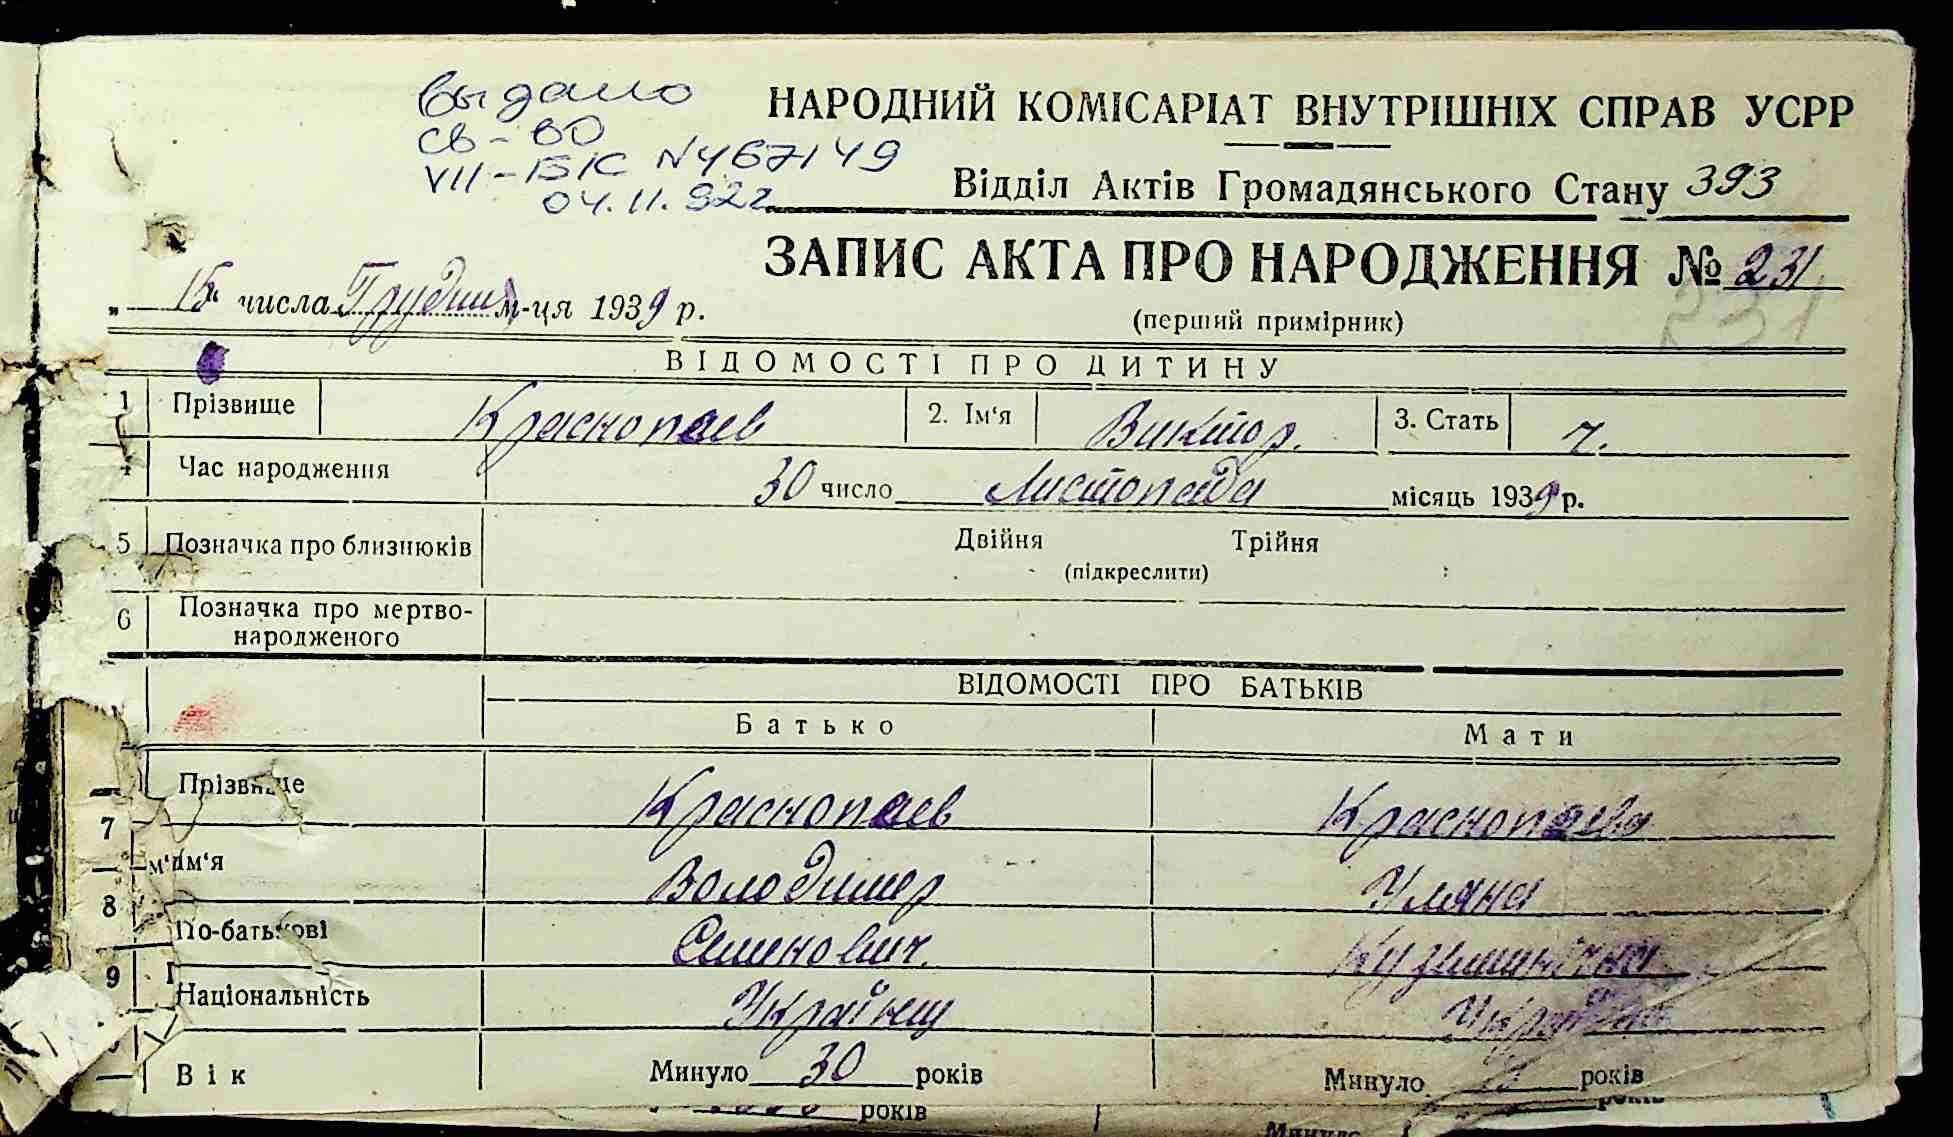 выдано
св-во
VII-БК N467149
04.11.92г
НАРОДНИЙ КОМІСАРІАТ ВНУТРІШНІХ СПРАВ УСРР
Відділ Актів Громадянського Стану 393
ЗАПИС АКТА ПРО НАРОДЖЕННЯ № 231
„ 15 " числа Грудня м-ця 1939 р.
(перший примірник)
231
ВІДОМОСТІ ПРО ДИТИНУ
1 Прізвище Краснопаев 2. Ім'я Виктор. 3. Стать ч.
4 Час народження 30 число Листопада місяць 1939 р.
5 Позначка про близнюків Двійня Трійня
(підкреслити)
6 Позначка про мертво-
народженого
ВІДОМОСТІ ПРО БАТЬКІВ
Батько Мати
Прізвище Краснопаев Краснопаева
7
Ім'я Володимер Уляна
8
По-батькові Семенович.
9
Національність Українц
Вік Минуло 30 років Минуло років
років
років
Минуло